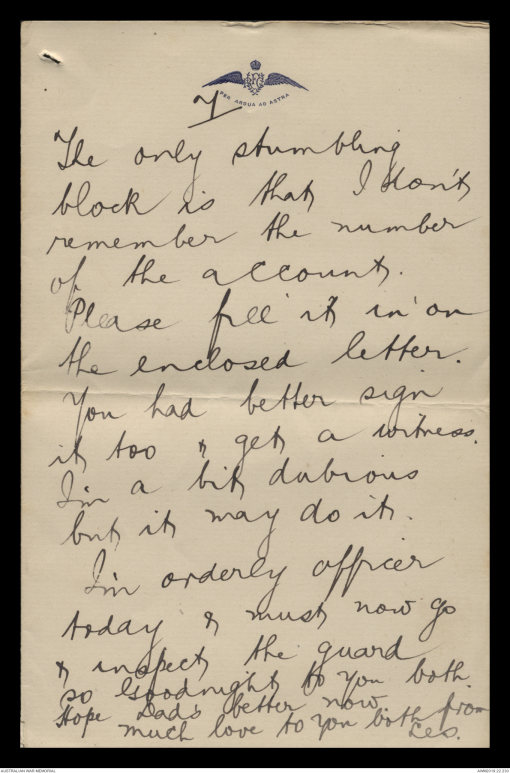 RFC
PER ARDUA AD ASTRA
7
The only stumbling
block is that I don't
remember the number
of the account.
Please fill it in on
the enclosed letter.
You had better sign
it too & get a witness.
I'm a bit dubious
but it may do it.
I'm orderly officer
today & must now go
& inspect the guard
so Goodnight to you both.
Hope Dad's better now
much love to you both from
Les.
AUSTRALIAN WAR MEMORIAL